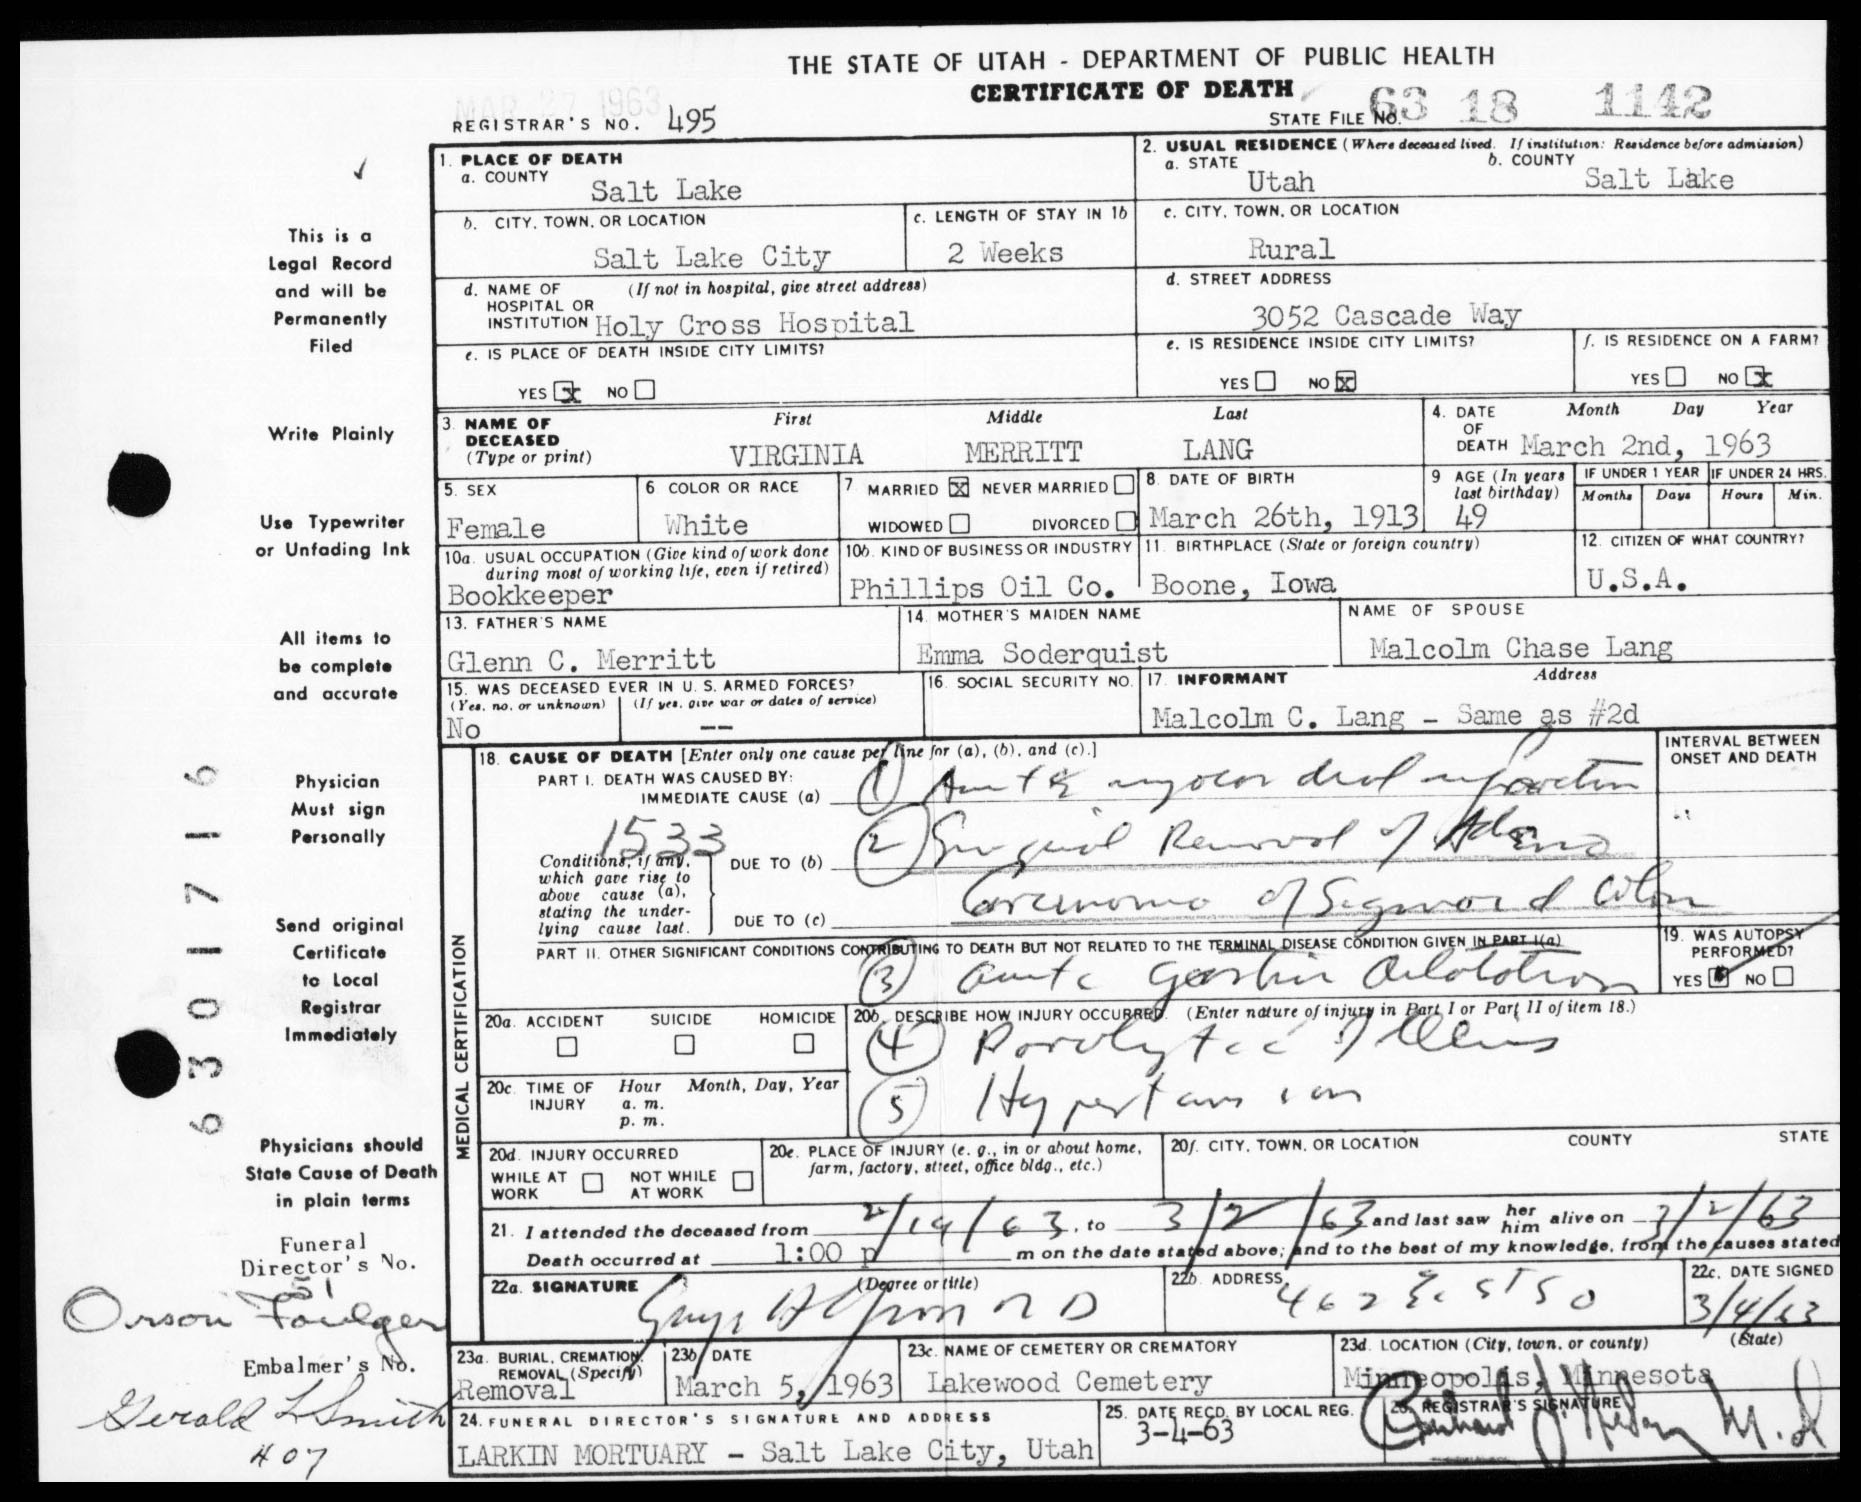 THE STATE OF UTAH - DEPARTMENT OF PUBLIC HEALTH
CERTIFICATE OF DEATH
MAR 27 1963
REGISTRAR'S NO. 495
STATE FILE NO. 63 18 1142
1. PLACE OF DEATH
a. COUNTY
Salt Lake
2. USUAL RESIDENCE (Where deceased lived. If institution: Residence before admission)
a. STATE
Utah
b. COUNTY
Salt Lake
b. CITY, TOWN, OR LOCATION
Salt Lake City
c. LENGTH OF STAY IN 1b
2 Weeks
c. CITY, TOWN, OR LOCATION
Rural
d. NAME OF HOSPITAL OR INSTITUTION (If not in hospital, give street address)
Holy Cross Hospital
d. STREET ADDRESS
3052 Cascade Way
e. IS PLACE OF DEATH INSIDE CITY LIMITS?
YES x NO
e. IS RESIDENCE INSIDE CITY LIMITS?
YES NO x
f. IS RESIDENCE ON A FARM?
YES NO x
3. NAME OF DECEASED (Type or print)
First Middle Last
VIRGINIA MERRITT LANG
4. DATE OF DEATH Month Day Year
March 2nd, 1963
5. SEX
Female
6 COLOR OR RACE
White
7 MARRIED x NEVER MARRIED
WIDOWED DIVORCED
8. DATE OF BIRTH
March 26th, 1913
9 AGE (In years last birthday)
49
IF UNDER 1 YEAR
Months Days
IF UNDER 24 HRS.
Hours Min.
10a. USUAL OCCUPATION (Give kind of work done during most of working life, even if retired)
Bookkeeper
10b. KIND OF BUSINESS OR INDUSTRY
Phillips Oil Co.
11. BIRTHPLACE (State or foreign country)
Boone, Iowa
12. CITIZEN OF WHAT COUNTRY?
U.S.A.
13. FATHER'S NAME
Glenn C. Merritt
14. MOTHER'S MAIDEN NAME
Emma Soderquist
NAME OF SPOUSE
Malcolm Chase Lang
15. WAS DECEASED EVER IN U. S. ARMED FORCES?
(Yes, no, or unknown) (If yes, give war or dates of service)
No --
16. SOCIAL SECURITY NO.
17. INFORMANT Address
Malcolm C. Lang - Same as #2d
MEDICAL CERTIFICATION
18. CAUSE OF DEATH [Enter only one cause per line for (a), (b), and (c).]
INTERVAL BETWEEN ONSET AND DEATH
PART I. DEATH WAS CAUSED BY:
IMMEDIATE CAUSE (a) 1 Acute myocardial infarction
1533
Conditions, if any, which gave rise to above cause (a), stating the underlying cause last.
DUE TO (b) 2 Surgical Removal of Adeno
DUE TO (c) Carcinoma of Sigmoid Colon
PART II. OTHER SIGNIFICANT CONDITIONS CONTRIBUTING TO DEATH BUT NOT RELATED TO THE TERMINAL DISEASE CONDITION GIVEN IN PART I(a)
3 acute gastric dilatation
19. WAS AUTOPSY PERFORMED?
YES NO
20a. ACCIDENT SUICIDE HOMICIDE
20b. DESCRIBE HOW INJURY OCCURRED. (Enter nature of injury in Part I or Part II of item 18.)
4 Paralytic Illeus
5 Hypertension
20c. TIME OF INJURY Hour Month, Day, Year
a. m.
p. m.
20d. INJURY OCCURRED
WHILE AT WORK NOT WHILE AT WORK
20e. PLACE OF INJURY (e. g., in or about home, farm, factory, street, office bldg., etc.)
20f. CITY, TOWN, OR LOCATION COUNTY STATE
21. I attended the deceased from 2/19/63, to 3/2/63 and last saw her him alive on 3/2/63
Death occurred at 1:00 p m on the date stated above; and to the best of my knowledge, from the causes stated
22a. SIGNATURE (Degree or title)
M D
22b. ADDRESS
462 E. 5th So
22c. DATE SIGNED
3/4/63
23a. BURIAL, CREMATION, REMOVAL (Specify)
Removal
23b DATE
March 5, 1963
23c. NAME OF CEMETERY OR CREMATORY
Lakewood Cemetery
23d. LOCATION (City, town, or county) (State)
Minneopolis, Minnesota
24. FUNERAL DIRECTOR'S SIGNATURE AND ADDRESS
LARKIN MORTUARY - Salt Lake City, Utah
25. DATE RECD. BY LOCAL REG.
3-4-63
26. REGISTRAR'S SIGNATURE
M.D
This is a
Legal Record
and will be
Permanently
Filed
Write Plainly
Use Typewriter
or Unfading Ink
All items to
be complete
and accurate
Physician
Must sign
Personally
Send original
Certificate
to Local
Registrar
Immediately
Physicians should
State Cause of Death
in plain terms
Funeral
Director's No.
51
Orson Foulger
Embalmer's No.
Gerald L Smith
407
6301716